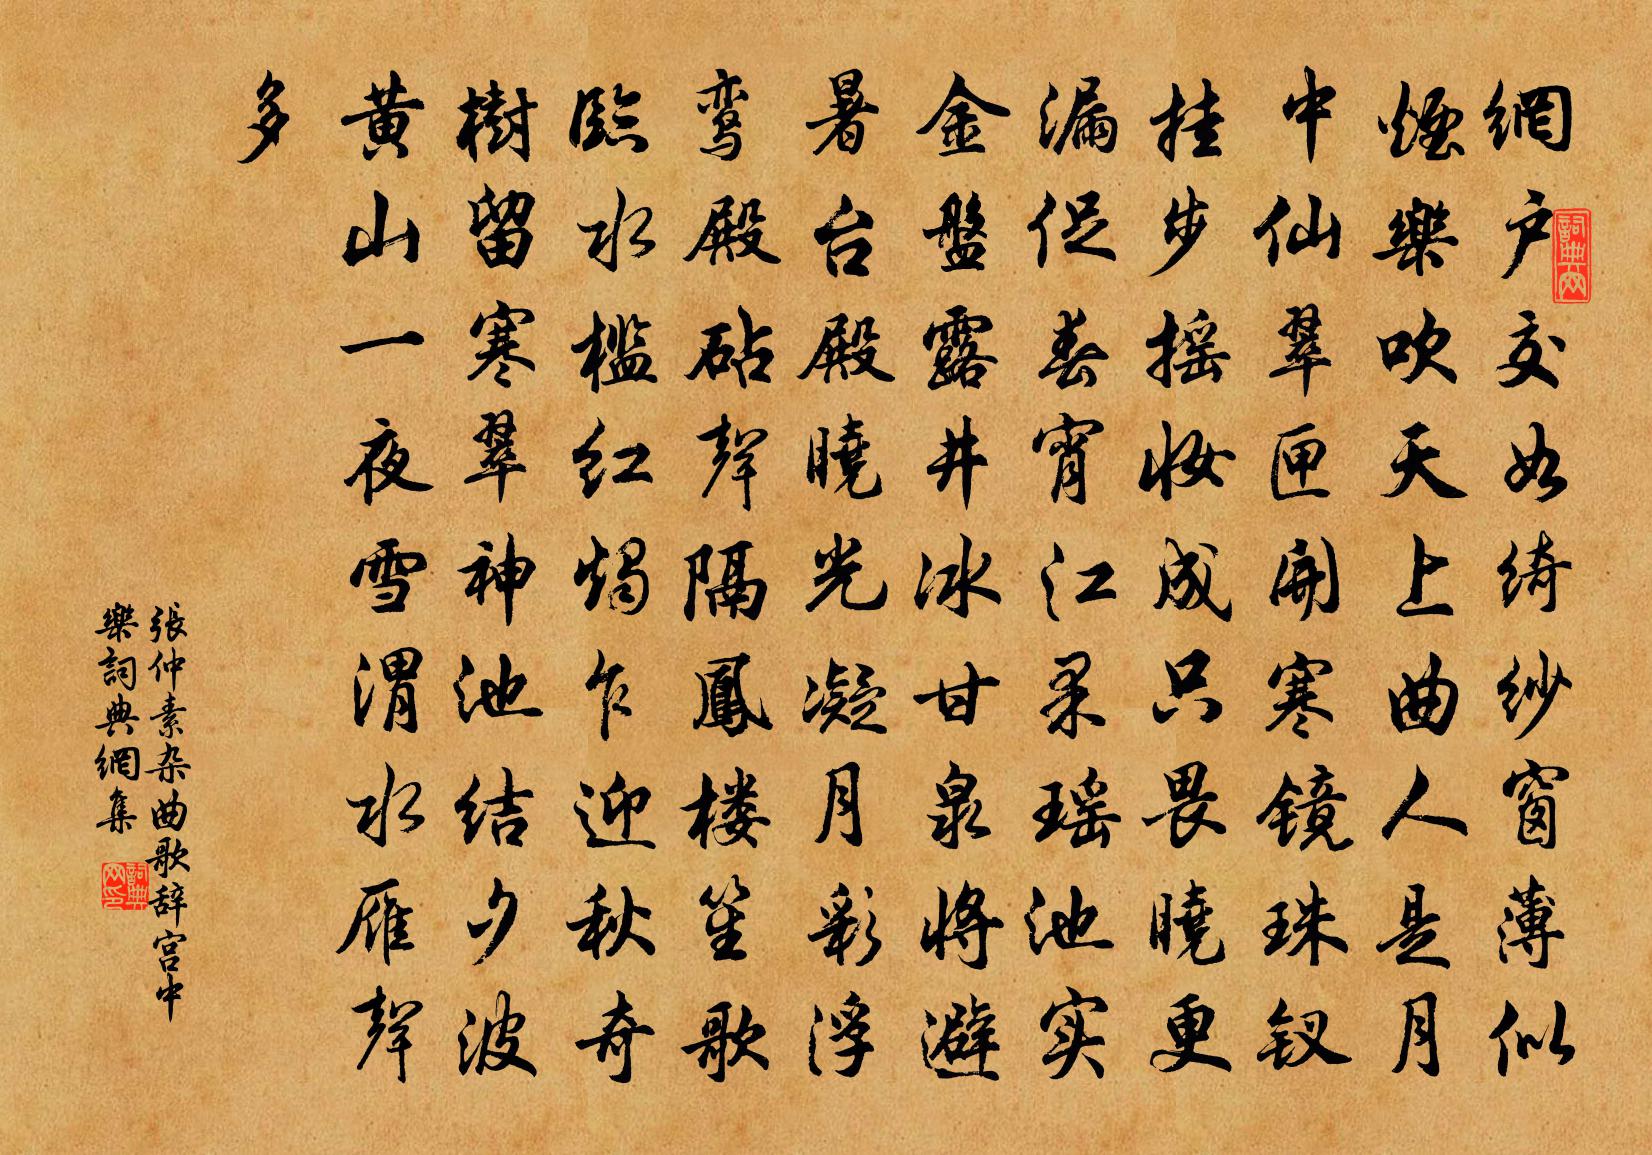 網户交如綺紗窗薄似
煙樂吹天上曲人是月
中仙翠匣開寒镜珠钗
挂步摇妆成只畏曉更
漏促春宵江果瑶池实
金盤露井冰甘泉将避
暑台殿曉光凝月彩浮
鸾殿砧聲隔鳳楼笙歌
臨水槛红燭乍迎秋奇
樹留寒翠神池结夕波
黄山一夜雪渭水雁聲
多
張仲素杂曲歌辞宫中
樂詞典網集
詞典网
詞典网印